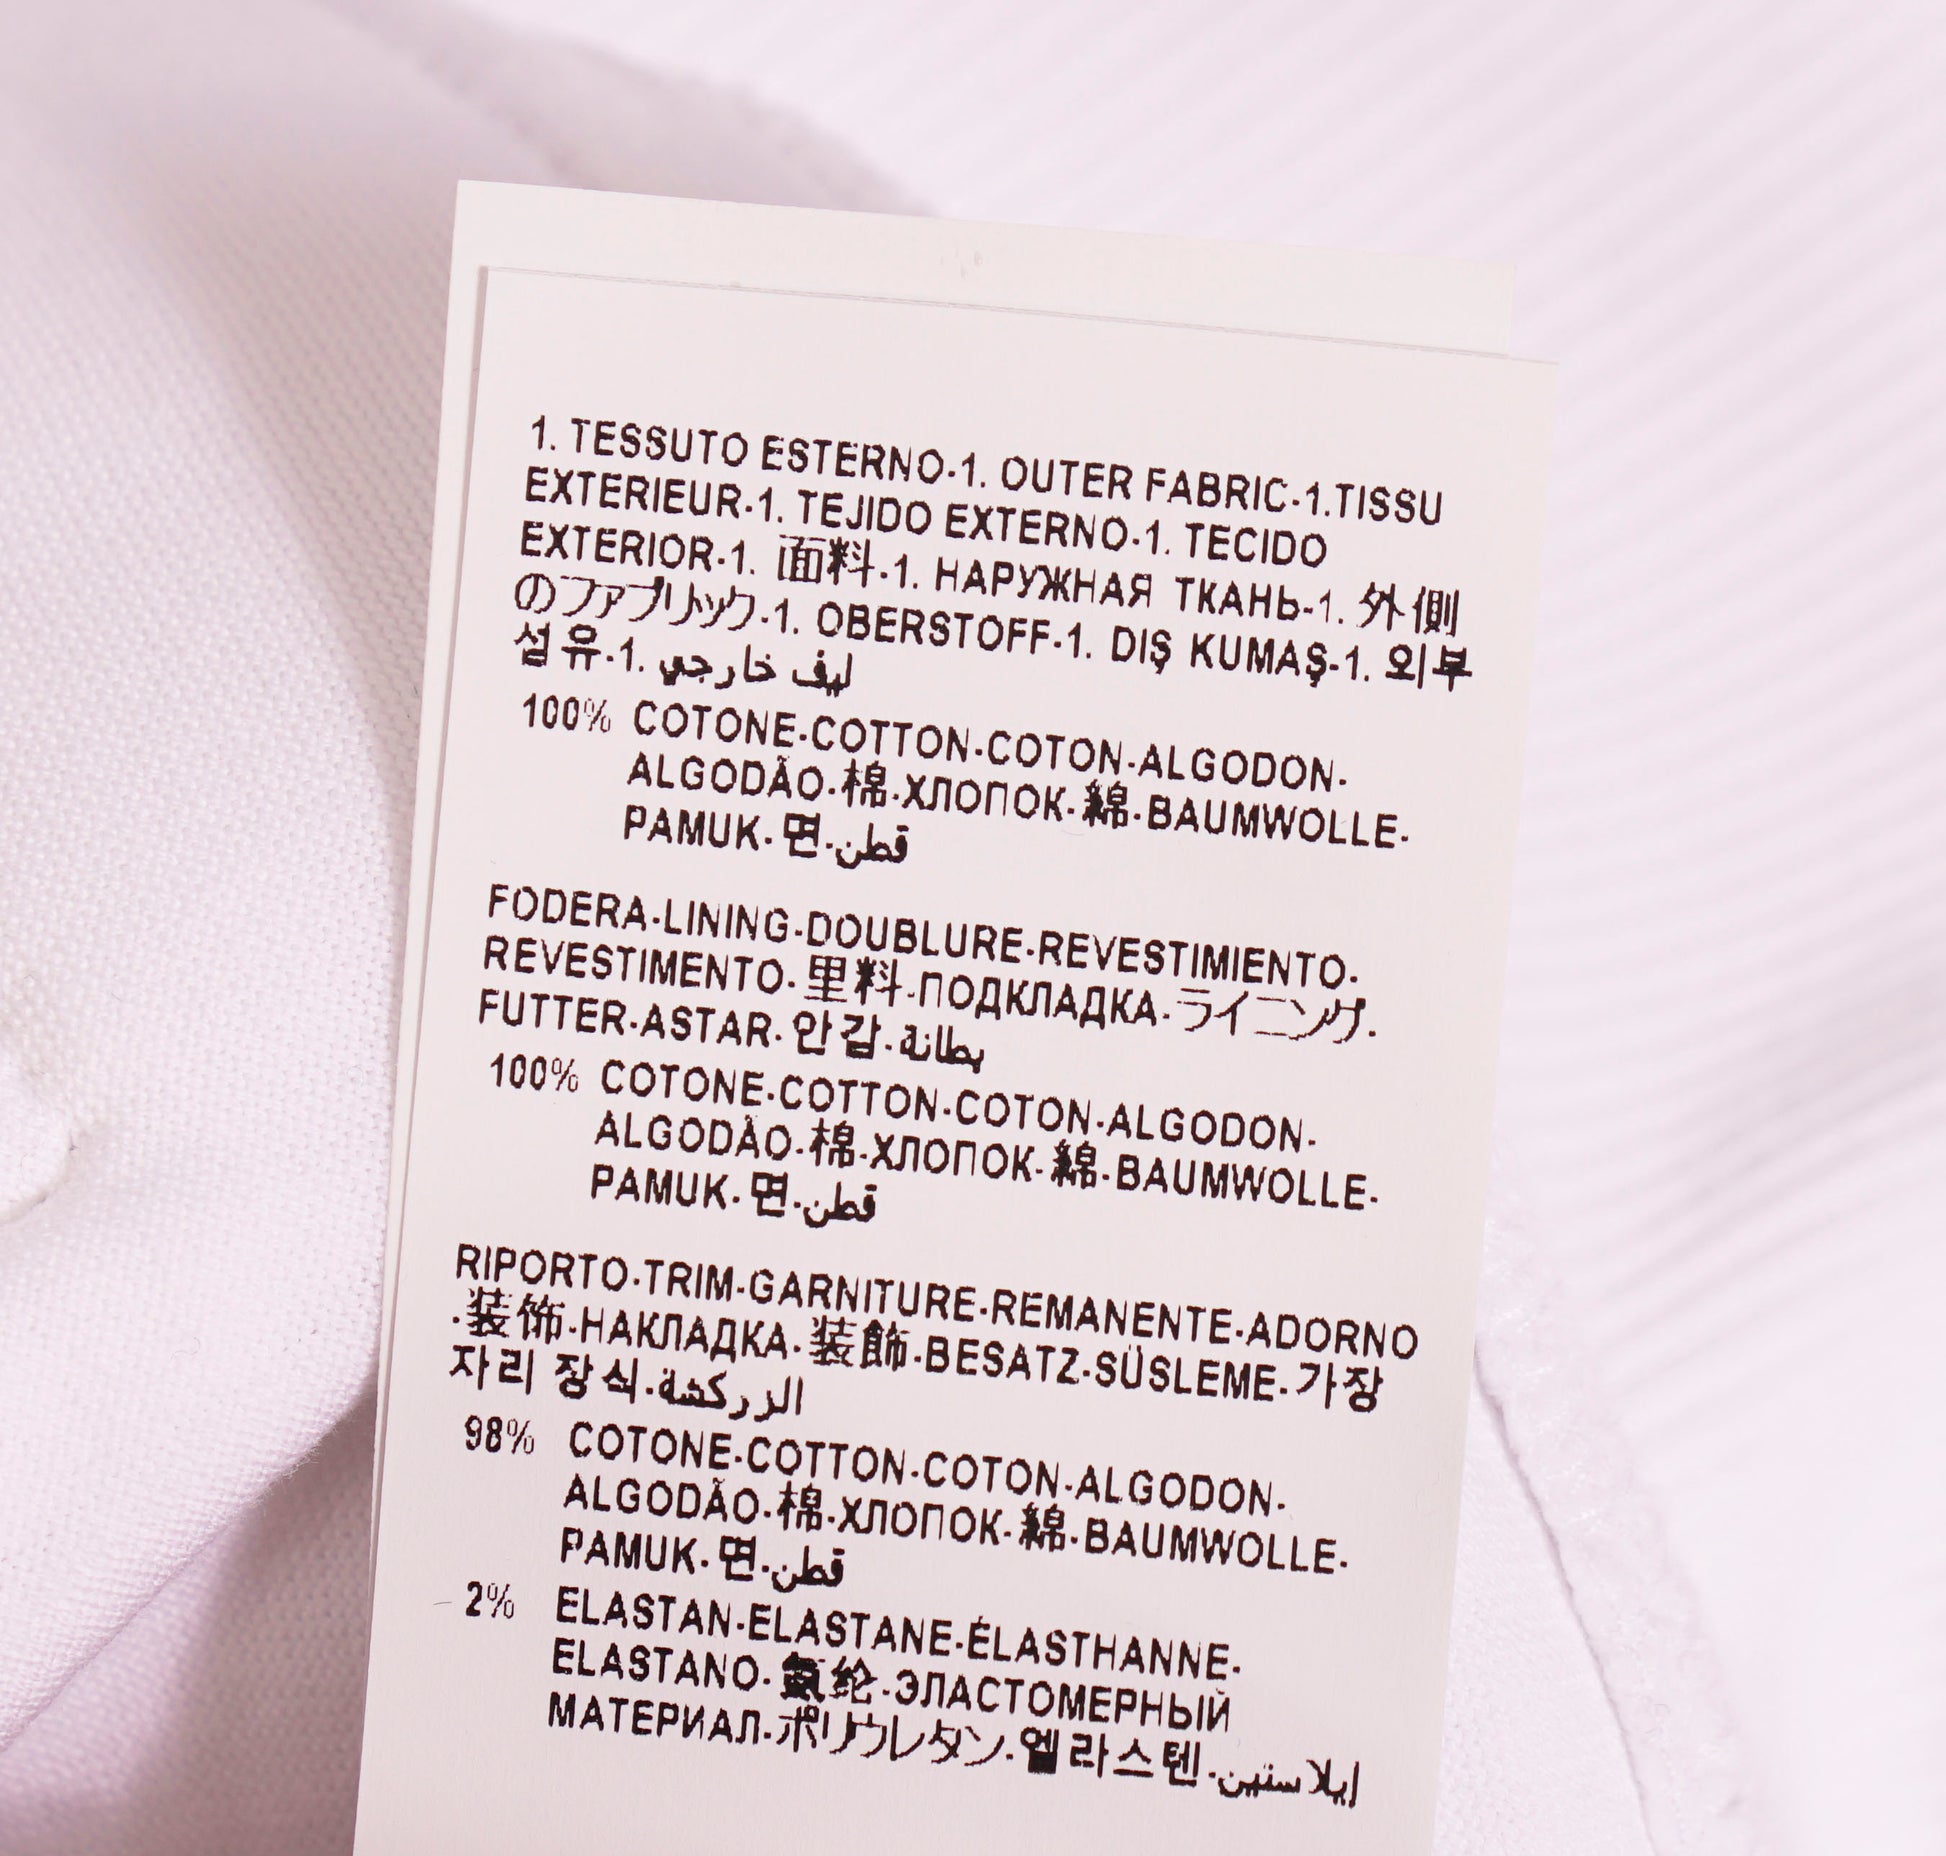 1. TESSUTO ESTERNO-1. OUTER FABRIC-1.TISSU
EXTERIEUR-1. TEJIDO EXTERNO-1. TECIDO
EXTERIOR-1. 面料-1. НАРУЖНАЯ ТКАНЬ-1. 外側
のファブリック-1. OBERSTOFF-1. DIŞ KUMAŞ-1. 외부
섬유-1. ليف خارجي
100% COTONE-COTTON-COTON-ALGODON-
ALGODÃO-棉-ХЛОПОК-綿-BAUMWOLLE-
PAMUK-면-قطن
FODERA-LINING-DOUBLURE-REVESTIMIENTO-
REVESTIMENTO-里料-ПОДКЛАДКА-ライニング-
FUTTER-ASTAR-안감-بطانة
100% COTONE-COTTON-COTON-ALGODON-
ALGODÃO-棉-ХЛОПОК-綿-BAUMWOLLE-
PAMUK-면-قطن
RIPORTO-TRIM-GARNITURE-REMANENTE-ADORNO
-装饰-НАКЛАДКА-装飾-BESATZ-SÜSLEME-가장
자리 장식-الزركشة
98% COTONE-COTTON-COTON-ALGODON-
ALGODÃO-棉-ХЛОПОК-綿-BAUMWOLLE-
PAMUK-면-قطن
2% ELASTAN-ELASTANE-ÉLASTHANNE-
ELASTANO-氨纶-ЭЛАСТОМЕРНЫЙ
МАТЕРИАЛ-ポリウレタン-엘라스텐-إيلاستين